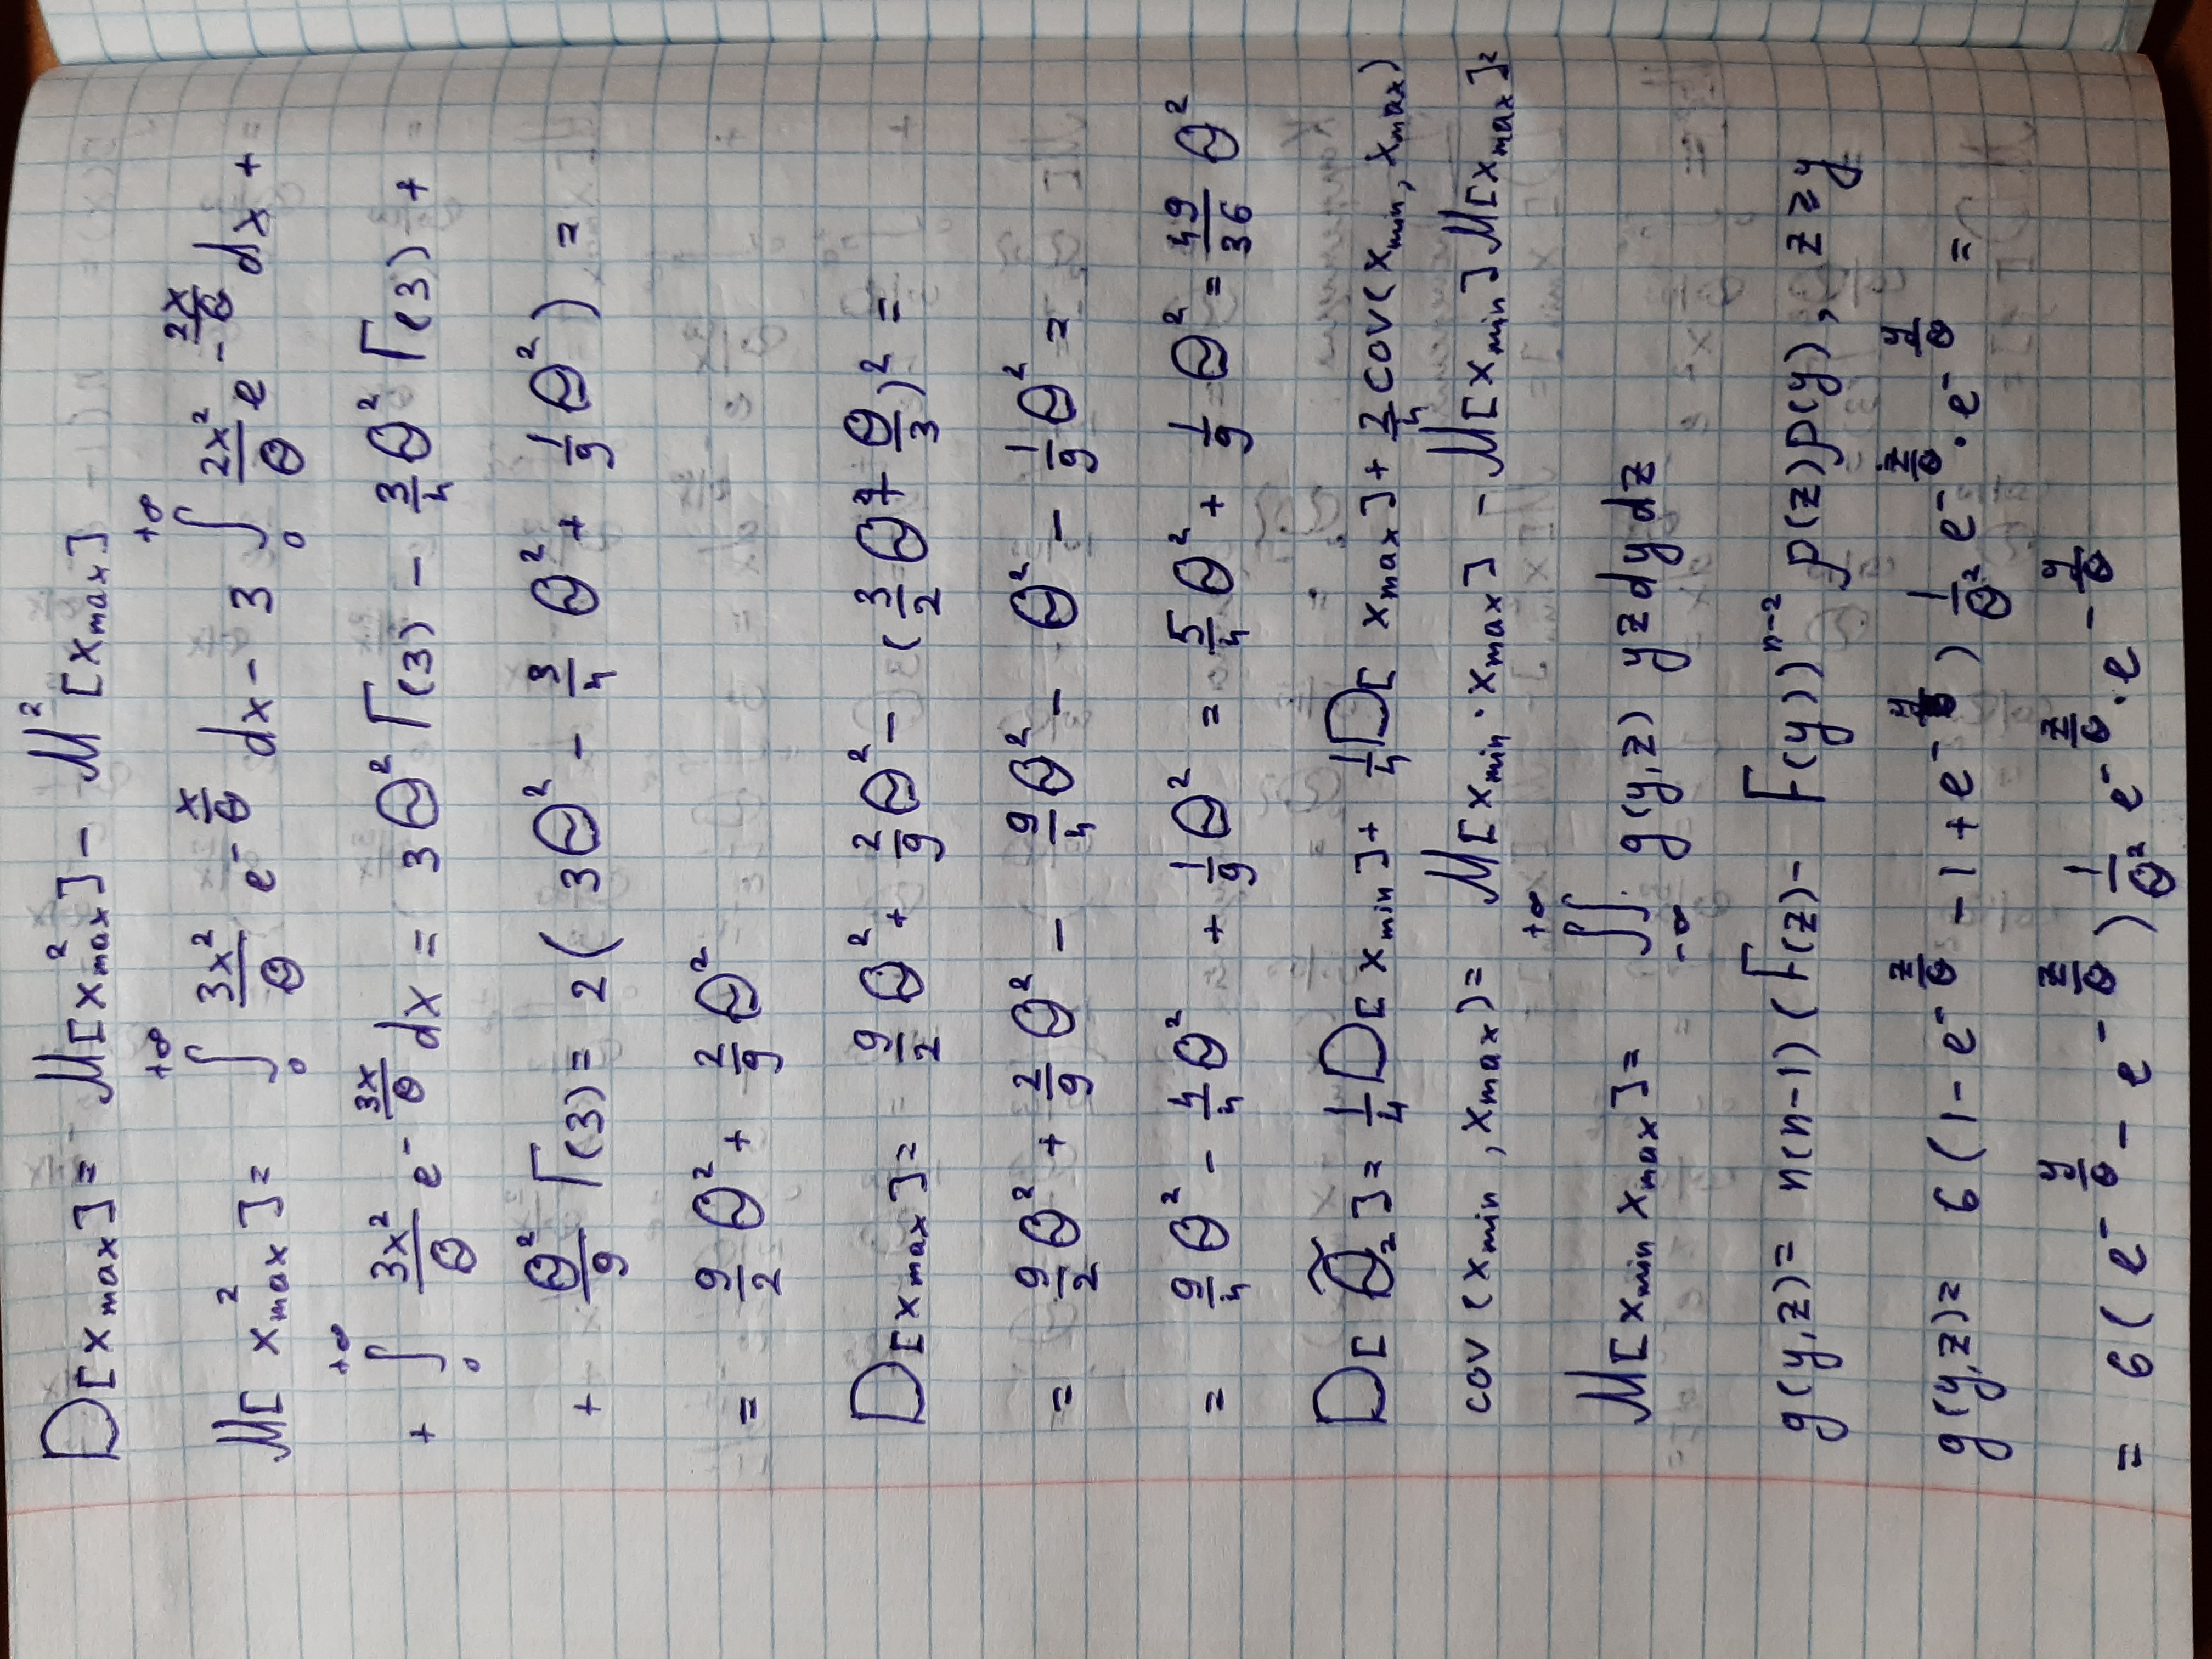 D[x_max] = M[x²_max] - M²[x_max]
M[x²_max] = ∫₀^{+∞} 3x²/θ e^{-x/θ} dx - 3 ∫₀^{+∞} 2x²/θ e^{-2x/θ} dx +
+ ∫₀^{+∞} 3x²/θ e^{-3x/θ} dx = 3θ² Γ(3) - 3/4 θ² Γ(3) +
+ θ²/9 Γ(3) = 2(3θ² - 3/4 θ² + 1/9 θ²) =
= 9/2 θ² + 2/9 θ²
D[x_max] = 9/2 θ² + 2/9 θ² - (3/2 θ + θ/3)² =
= 9/2 θ² + 2/9 θ² - 9/4 θ² - θ² - 1/9 θ² =
= 9/4 θ² - 4/4 θ² + 1/9 θ² = 5/4 θ² + 1/9 θ² = 49/36 θ²
D[θ̃₂] = 1/4 D[x_min] + 1/4 D[x_max] + 2/4 cov(x_min, x_max)
cov(x_min, x_max) = M[x_min · x_max] - M[x_min] M[x_max] =
M[x_min x_max] = ∬_{-∞}^{+∞} g(y,z) yz dy dz
g(y,z) = n(n-1)(F(z) - F(y))^{n-2} p(z)p(y), z ≥ y
g(y,z) = 6(1 - e^{-z/θ} - 1 + e^{-y/θ}) 1/θ² e^{-z/θ} · e^{-y/θ} =
= 6(e^{-y/θ} - e^{-z/θ}) 1/θ² e^{-z/θ} · e^{-y/θ}